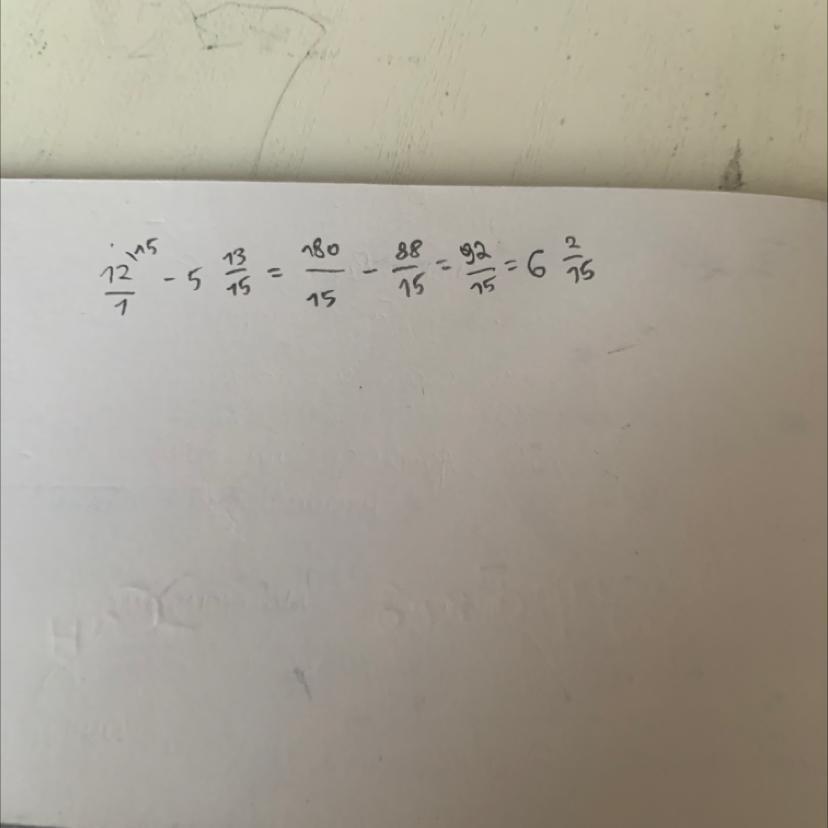 12/1 \15 - 5 13/15 = 180/15 - 88/15 = 92/15 = 6 2/15